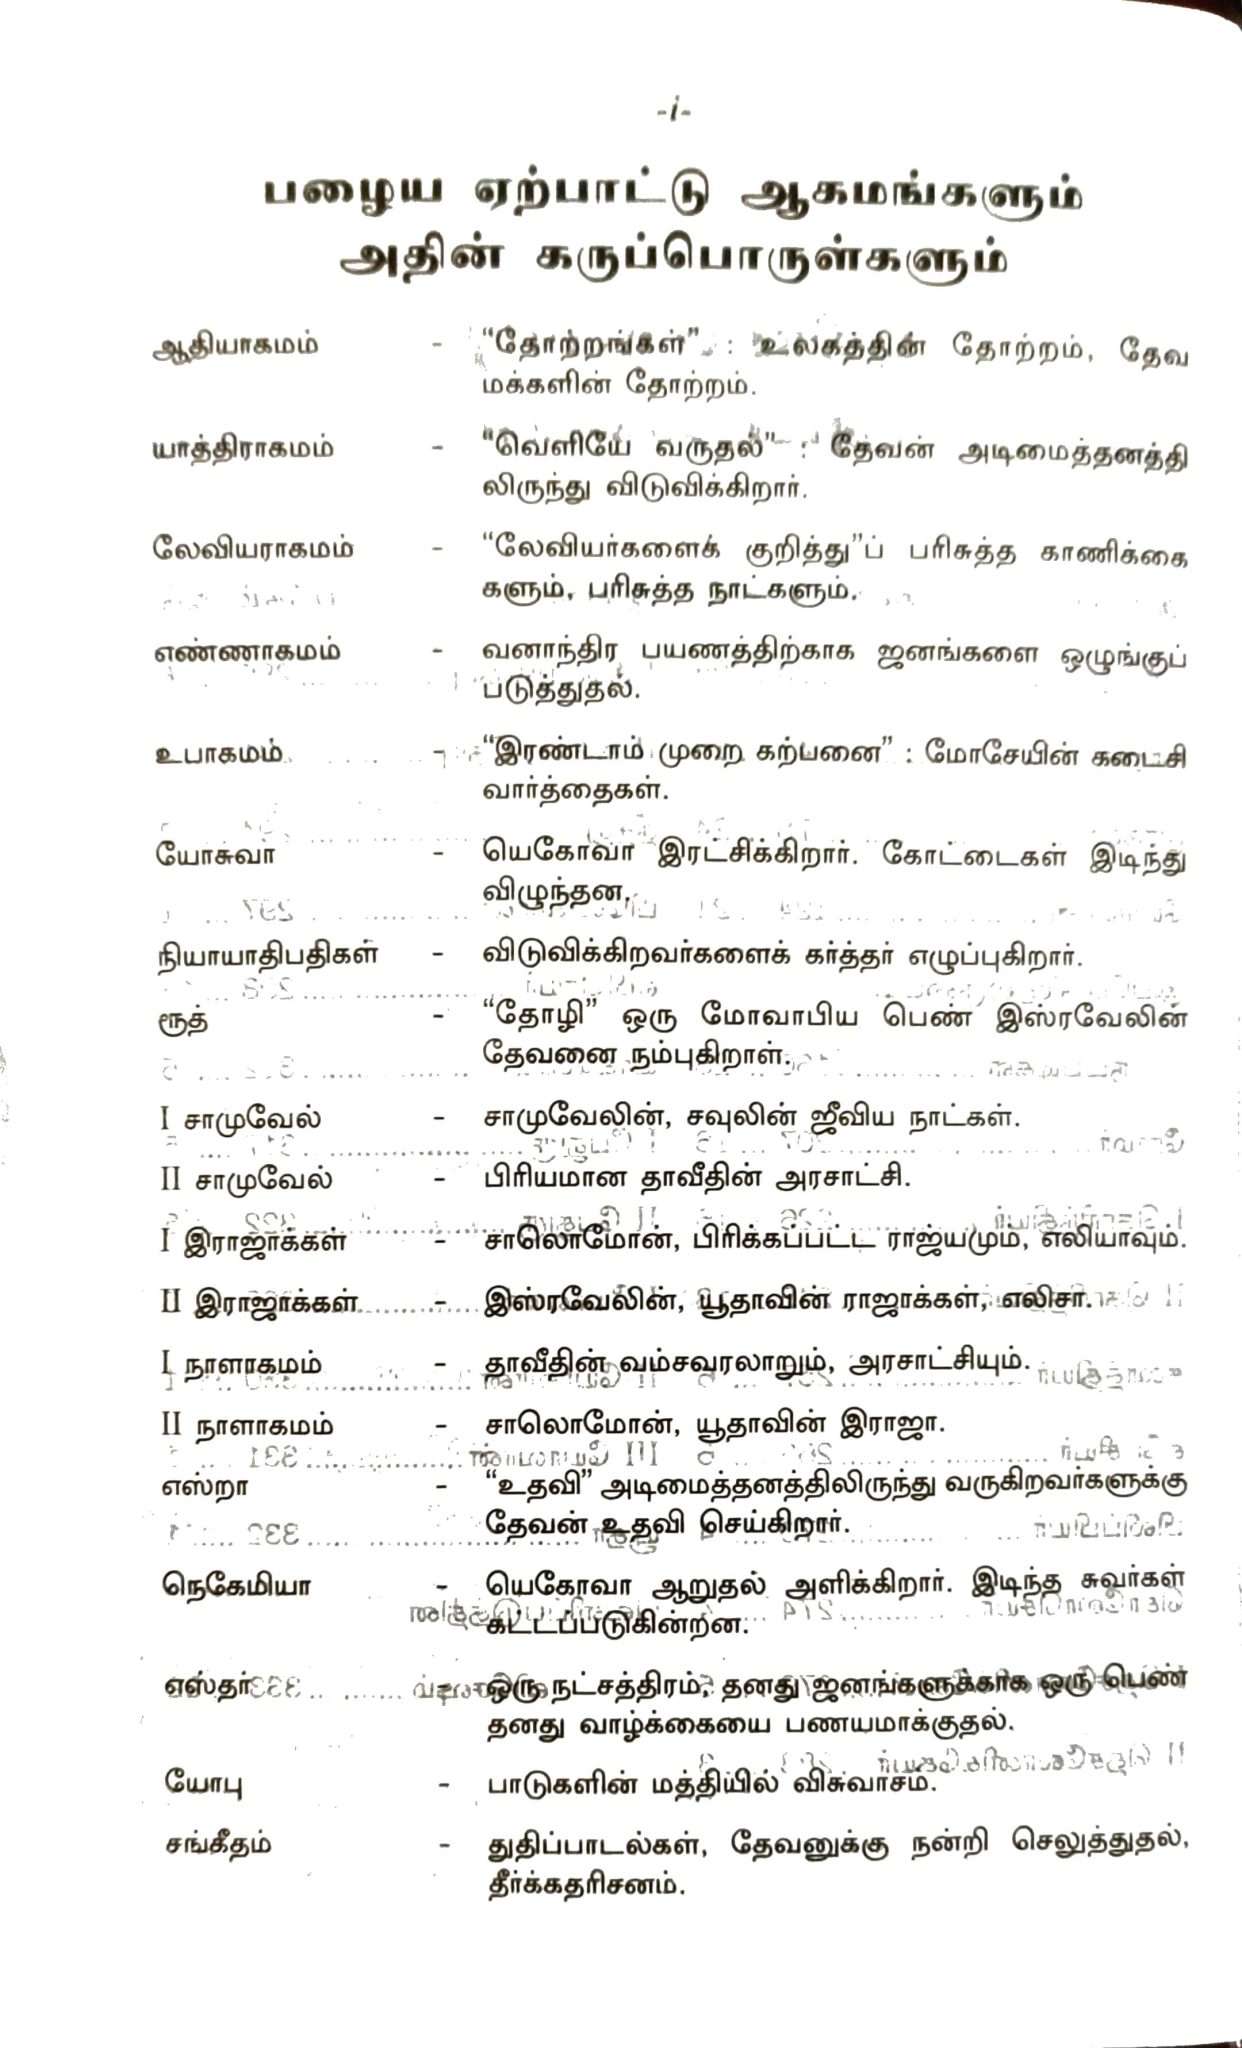 -i-
பழைய ஏற்பாட்டு ஆகமங்களும்
அதின் கருப்பொருள்களும்
ஆதியாகமம் - “தோற்றங்கள்” : உலகத்தின் தோற்றம், தேவ
மக்களின் தோற்றம்.
யாத்திராகமம் - “வெளியே வருதல்” : தேவன் அடிமைத்தனத்தி
லிருந்து விடுவிக்கிறார்.
லேவியராகமம் - “லேவியர்களைக் குறித்து”ப் பரிசுத்த காணிக்கை
களும், பரிசுத்த நாட்களும்.
எண்ணாகமம் - வனாந்திர பயணத்திற்காக ஜனங்களை ஒழுங்குப்
படுத்துதல்.
உபாகமம் - “இரண்டாம் முறை கற்பனை” : மோசேயின் கடைசி
வார்த்தைகள்.
யோசுவா - யெகோவா இரட்சிக்கிறார். கோட்டைகள் இடிந்து
விழுந்தன.
நியாயாதிபதிகள் - விடுவிக்கிறவர்களைக் கர்த்தர் எழுப்புகிறார்.
ரூத் - “தோழி” ஒரு மோவாபிய பெண் இஸ்ரவேலின்
தேவனை நம்புகிறாள்.
I சாமுவேல் - சாமுவேலின், சவுலின் ஜீவிய நாட்கள்.
II சாமுவேல் - பிரியமான தாவீதின் அரசாட்சி.
I இராஜாக்கள் - சாலொமோன், பிரிக்கப்பட்ட ராஜ்யமும், எலியாவும்.
II இராஜாக்கள் - இஸ்ரவேலின், யூதாவின் ராஜாக்கள், எலிசா.
I நாளாகமம் - தாவீதின் வம்சவரலாறும், அரசாட்சியும்.
II நாளாகமம் - சாலொமோன், யூதாவின் இராஜா.
எஸ்றா - “உதவி” அடிமைத்தனத்திலிருந்து வருகிறவர்களுக்கு
தேவன் உதவி செய்கிறார்.
நெகேமியா - யெகோவா ஆறுதல் அளிக்கிறார். இடிந்த சுவர்கள்
கட்டப்படுகின்றன.
எஸ்தர் - ஒரு நட்சத்திரம், தனது ஜனங்களுக்காக ஒரு பெண்
தனது வாழ்க்கையை பணயமாக்குதல்.
யோபு - பாடுகளின் மத்தியில் விசுவாசம்.
சங்கீதம் - துதிப்பாடல்கள், தேவனுக்கு நன்றி செலுத்துதல்,
தீர்க்கதரிசனம்.